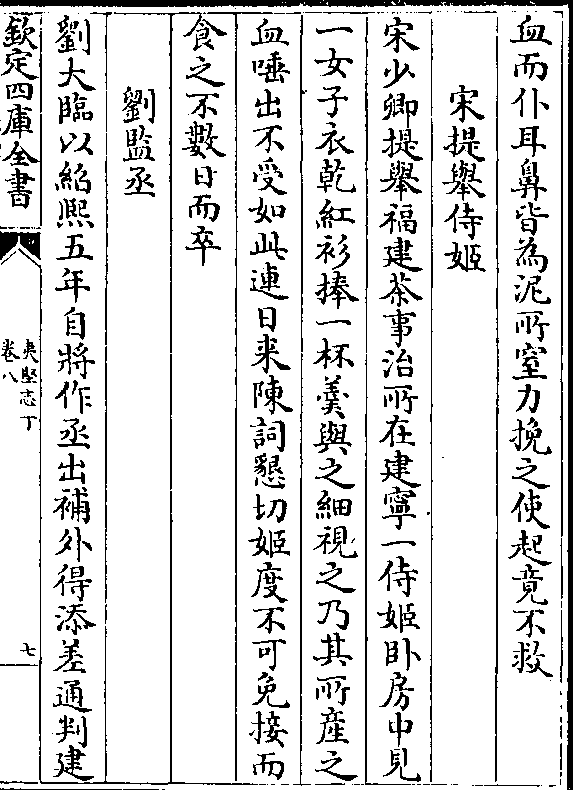 血而仆耳鼻皆為泥所窒力挽之使起竟不救
宋提舉侍姬
宋少卿提舉福建茶事治所在建寧一侍姬卧房中見
一女子衣乾紅衫捧一杯羹與之細視之乃其所產之
血唾出不受如此連日來陳詞懇切姬度不可免接而
食之不數日而卒
劉監丞
劉大臨以紹熙五年自將作丞出補外得添差通判建
欽定四庫全書
夷堅志丁
卷八
七